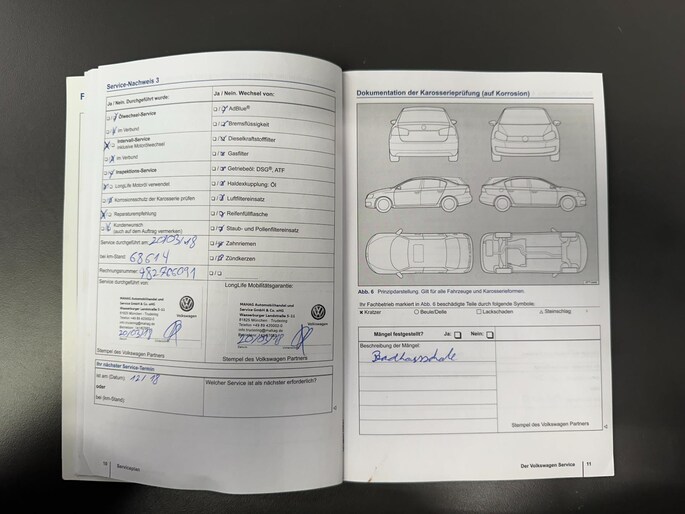 F
Service-Nachweis 3
Ja / Nein. Durchgeführt wurde:
Ölwechsel-Service
im Verbund
Intervall-Service
inklusive Motorölwechsel
im Verbund
Inspektions-Service
LongLife Motoröl verwendet
Korrosionsschutz der Karosserie prüfen
Reparaturempfehlung
Kundenwunsch
(auch auf dem Auftrag vermerken)
Service durchgeführt am: 20/03/18
bei km-Stand: 68614
Rechnungsnummer: 482706091
durchgeführt von:
MAHAG Automobilhandel und
Service GmbH & Co. oHG
Wasserburger Landstraße
81825 München - Trudering
20/03/18
Stempel des Volkswagen Partners
Ja / Nein. Wechsel von:
AdBlue®
Bremsflüssigkeit
Dieselkraftstofffilter
Gasfilter
Getriebeöl: DSG®, ATF
Haldexkupplung: Öl
Luftfiltereinsatz
Reifenfüllflasche
Staub- und Pollenfiltereinsatz
Zahnriemen
Zündkerzen
LongLife Mobilitätsgarantie:
MAHAG Automobilhandel und
Service GmbH & Co. oHG
Wasserburger Landstraße
81825 München - Trudering
20/03/18
Stempel des Volkswagen Partners
Ihr nächster Service-Termin
ist am (Datum): 12/18
oder
bei (km-Stand):
Welcher Service ist als nächster erforderlich?
10 Serviceplan
Dokumentation der Karosserieprüfung (auf Korrosion)
Abb. 6 Prinzipdarstellung. Gilt für alle Fahrzeuge und Karosserieformen.
Ihr Fachbetrieb markiert in Abb. 6 beschädigte Teile durch folgende Symbole:
Kratzer Beule/Delle Lackschaden Steinschlag
Mängel festgestellt? Ja: Nein:
Beschreibung der Mängel:
Stempel des Volkswagen Partners
Der Volkswagen Service 11